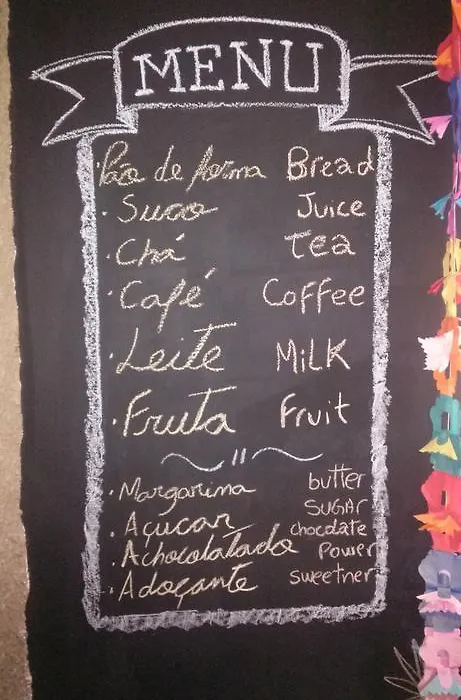 MENU
Pão de forma Bread
· Suco Juice
· Chá Tea
· Café Coffee
· Leite Milk
· Fruta Fruit
· Margarina butter
· Açucar SUGAr
· Achocolatado chocolate power
· Adoçante sweetner